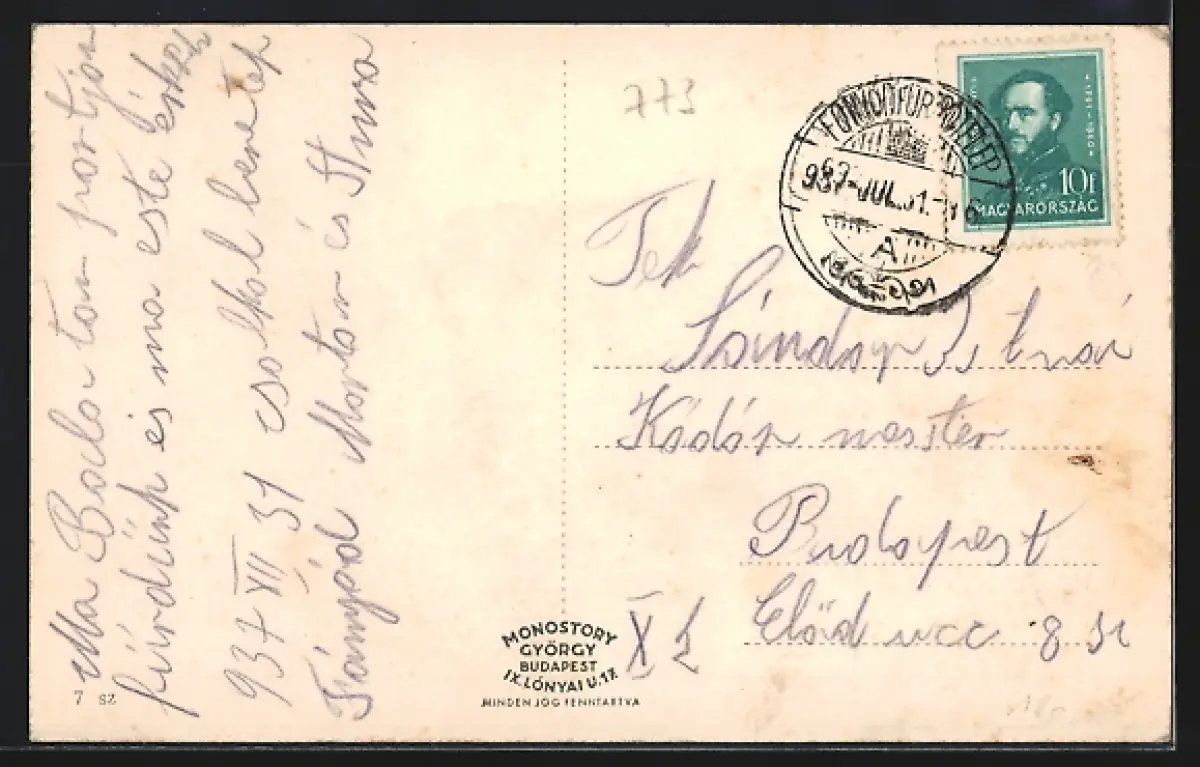 Ma Balaton partján
fürdünk és ma este
937 XII 31 csolkol benetek
Fányod Marton és
773
FONYÓDFÜRDŐTELEP
937-JUL.31.-16
A
10f
MAGYARORSZÁG
Tek
Sándor István
Kádár mester
Budapest
Előd ucc 8 sz
X 2
MONOSTORY
GYÖRGY
BUDAPEST
IX. LÓNYAI U. 17.
MINDEN JOG FENNTARTVA
7 sz